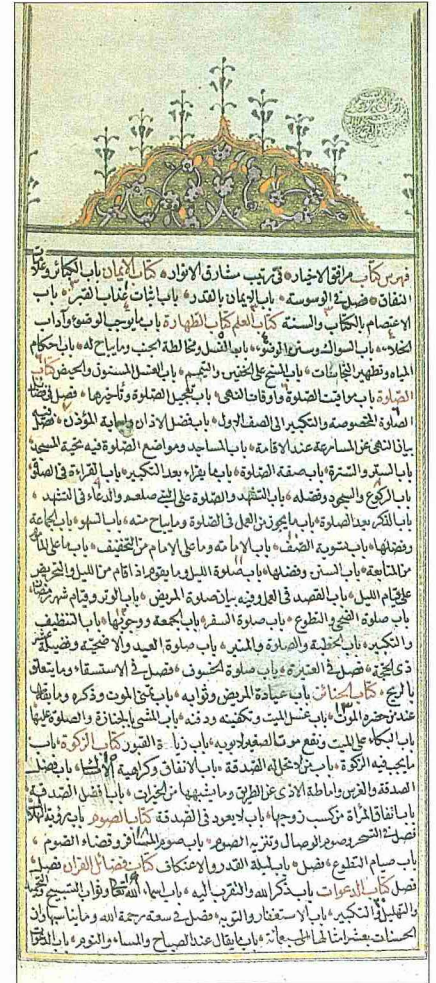 فهرس كتاب مرافق الاخيار فى ترتيب مشارق الانوار كتاب الايمان باب الكبائر وعلامات
النفاق فصل فى الوسوسة باب الايمان بالقدر باب اثبات عذاب القبر باب
الاعتصام بالكتاب والسنة كتاب العلم كتاب الطهارة باب ما يوجب الوضوء وآداب
الخلاء باب السواك وسنن الوضوء باب الغسل ومخالطة الجنب وما يباح له باب احكام
المياه وتطهير النجاسات باب المسح على الخفين والتيمم باب الغسل المسنون والحيض كتاب
الصلوة باب مواقت الصلوة واوقات النهى باب تعجيل الصلوة وتأخرها فصل فى فضائل
الصلوة المخصوصة والتكبير الى الصف الاول باب فضل الاذان واجابة المؤذن فصل فيه
بيان النهى عن المسارعة عند الاقامة باب المساجد ومواضع الصلوة فيه تحية المسجد
باب الستر والسترة باب صفة الصلوة باب ما يقراء بعد التكبير باب القراءة فى الصلوة
باب الركوع والسجود وفضله باب التشهد والصلوة على النبى صلعم والدعاء فى التشهد
باب الذكر بعد الصلوة باب ما يجوز من العمل فى الصلوة وما يباح منه باب السهو باب الجماعة
وفضلها باب تسوية الصف باب الامامة وما على الامام من التخفيف باب ما على المأموم
من المتابعة باب السنن وفضلها باب صلوة الليل وما يقوم اذا قام من الليل والتحريض
على قيام الليل باب القصد فى العمل وفيه بيان صلوة المريض باب الوتر وقيام شهر رمضان
باب صلوة الضحى والتطوع باب صلوة السفر باب الجمعة ووجوبها باب التنظيف
والتكبير باب الخطبة والصلوة والمنبر باب صلوة العيد والاضحية وفضيلة عشر
ذى الحجة فصل فى العتيرة باب صلوة الخسوف فصل فى الاستسقاء وما يتعلق
بالريح كتاب الجنائز باب عيادة المريض وثوابه باب تمنى الموت وذكره وما يقال
عند من حضره الموت باب غسل الميت وتكفينه ودفنه باب المشى بالجنازة والصلوة عليها
باب البكاء على الميت ونفع موت الصغير لابويه باب زيارة القبور كتاب الزكوة باب
ما يجب فيه الزكوة باب من لا تحل له الصدقة باب الانفاق وكراهية الامساك باب فضل
الصدقة والغرس واماطة الاذى عن الطريق وما يشبهها من الخيرات باب افضل الصدقة
باب انفاق المرأة من كسب زوجها باب لا يعود فى الصدقة كتاب الصوم باب رؤية الهلال
فصل فى السحر وصوم الوصال وتنزيه الصوم باب صوم المسافر وقضاء الصوم
باب صيام التطوع فصل باب ليلة القدر والاعتكاف كتاب فضائل القران فصل
فصل كتاب الدعوات باب ذكر الله والتقرب اليه باب اسماء الله تعالى وثواب التسبيح والتحميد
والتهليل والتكبير باب الاستغفار والتوبة فصل فى سعة رحمة الله وما يناسبها وان
الحسنات بعشر امثالها الى سبعمائة باب ما يقال عند الصباح والمساء والنوم باب الدعوات